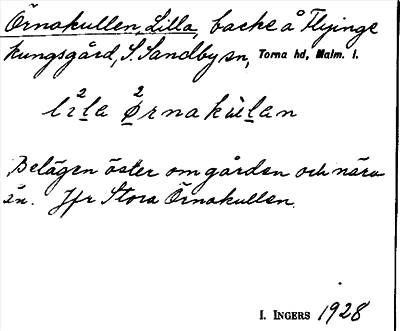 Örnakullen, Lilla, backe å Flyinge
kungsgård, S. Sandby sn, Torna hd, Malm. l.
lịla ørnakùlan
Belägen öster om gården och nära
ån. Jfr Stora Örnakullen.
I. INGERS 1928